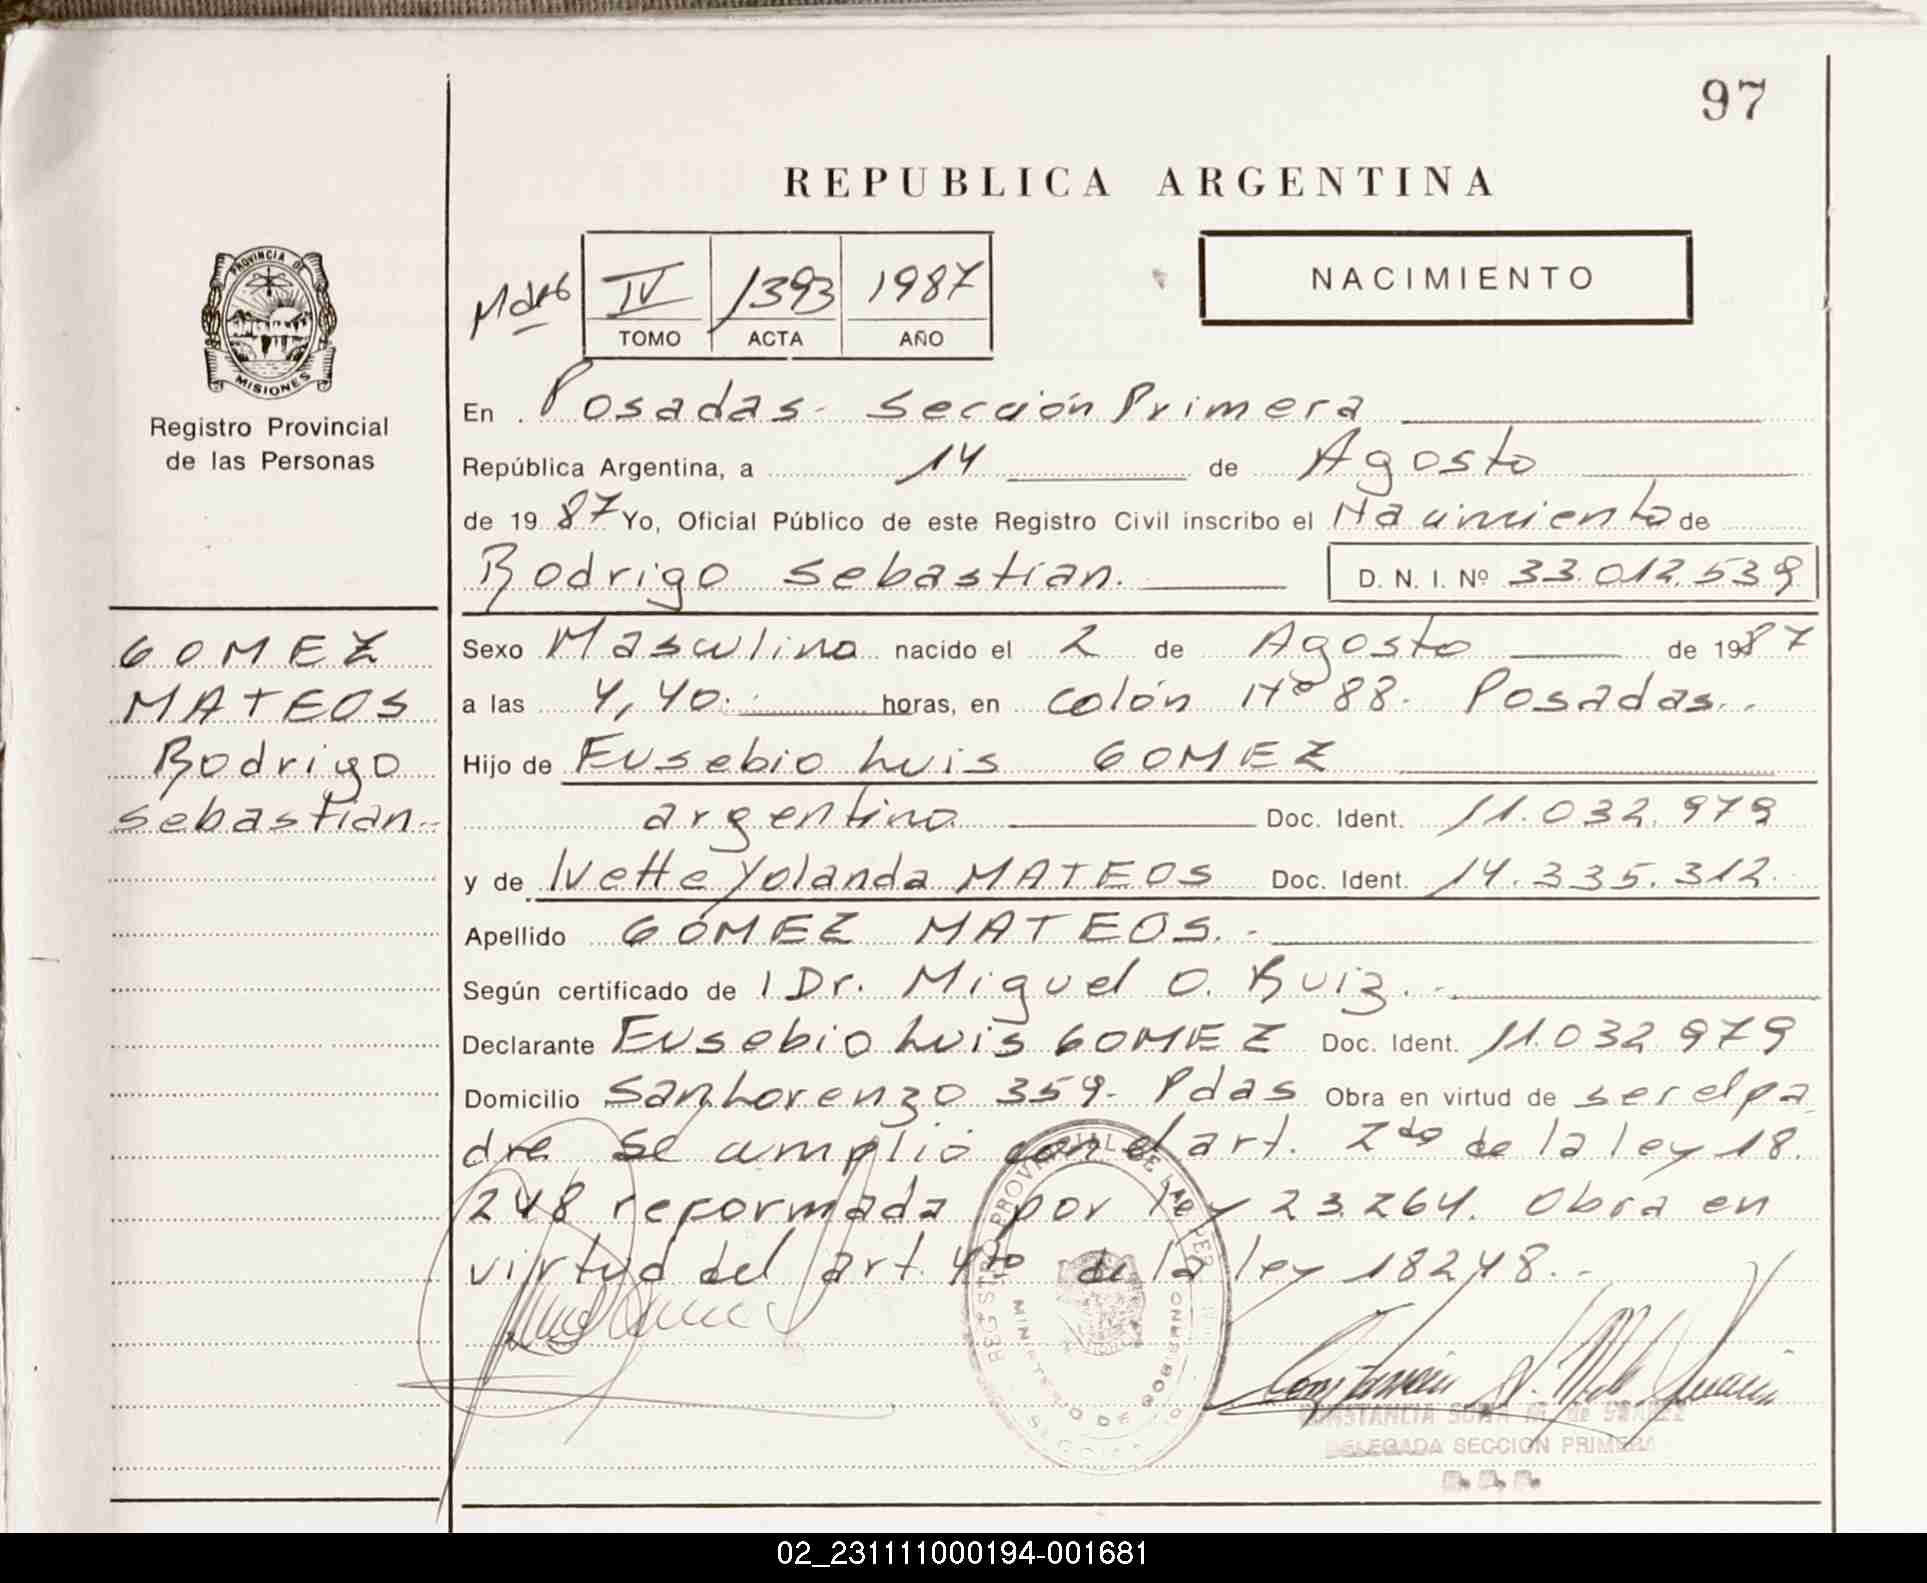 97
REPUBLICA ARGENTINA
PROVINCIA DE
MISIONES
Registro Provincial
de las Personas
IV 1393 1987
TOMO ACTA AÑO
NACIMIENTO
En Posadas - Sección Primera
República Argentina, a 14 de Agosto
de 1987 Yo, Oficial Público de este Registro Civil inscribo el Nacimiento de
Rodrigo Sebastian. D. N. I. Nº 33.012.539
GOMEZ
MATEOS
Rodrigo
Sebastian.-
Sexo Masculino nacido el 2 de Agosto de 1987
a las 4,40. horas, en Colón Nº 88. Posadas..
Hijo de Eusebio Luis GOMEZ
argentino Doc. Ident. 11.032.979
y de Ivette Yolanda MATEOS Doc. Ident. 14.335.312.
Apellido GOMEZ MATEOS.-
Según certificado de l Dr. Miguel O. Ruiz.-
Declarante Eusebio Luis GOMEZ Doc. Ident. 11.032.979
Domicilio San Lorenzo 359- Pdas Obra en virtud de ser el pa
dre se cumplió con el art. 2do de la ley 18.
248 reformada por ley 23.264. Obra en
virtud del art. 4to de la ley 18248.-
REGISTRO PROVINCIAL DE LAS PER
MINISTERIO DE GOBIERNO
CONSTANCIA
DELEGADA SECCION PRIMERA
02_231111000194-001681